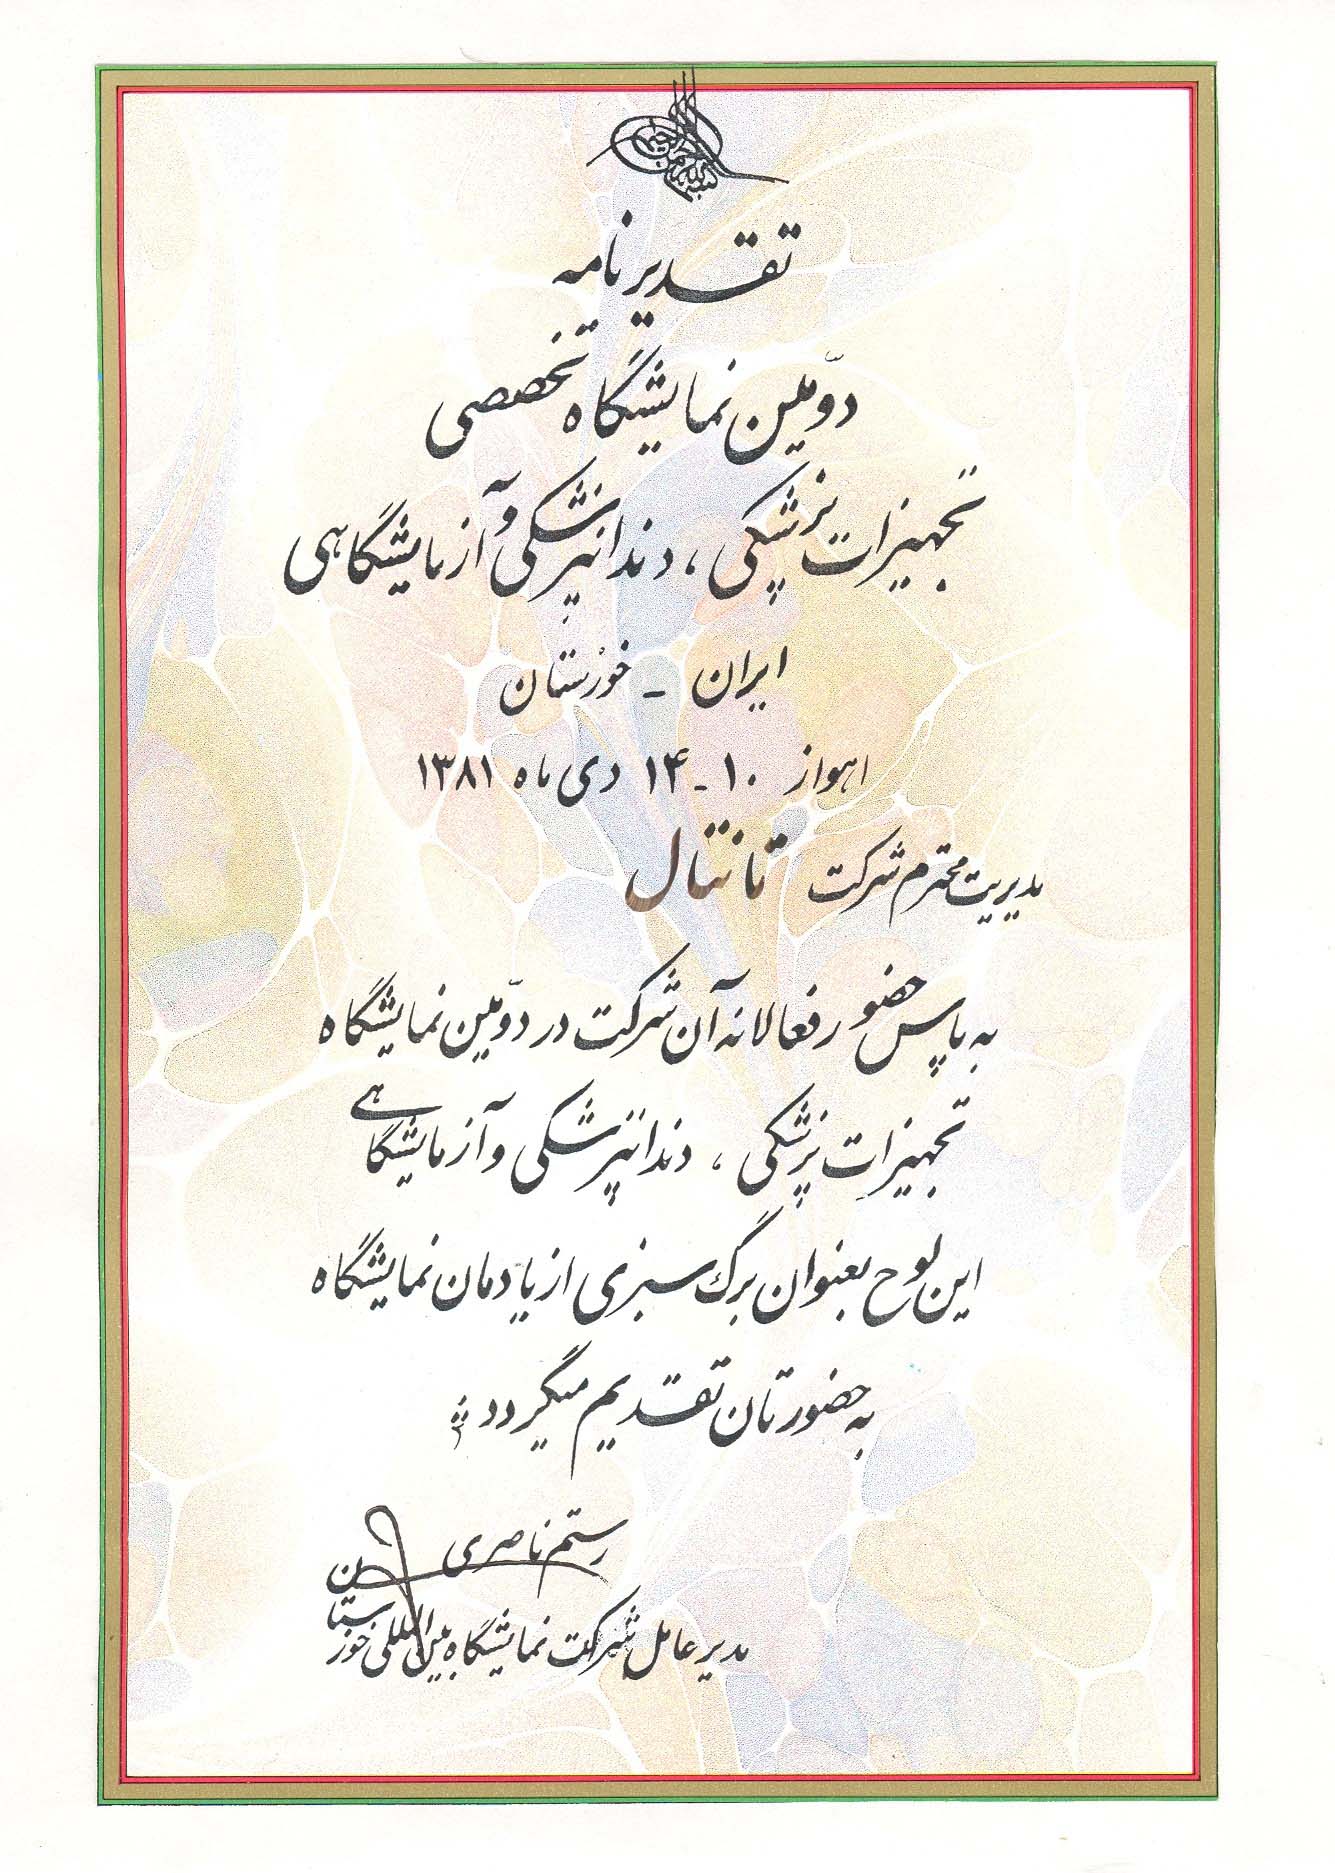 بسم الله الرحمن الرحیم
تقدیرنامه
دوّمین نمایشگاه تخصصی
تجهیزات پزشکی، دندانپزشکی و آزمایشگاهی
ایران - خوزستان
اهواز ۱۰-۱۴ دی ماه ۱۳۸۱
مدیریت محترم شرکت تانتال
به پاس حضور فعالانه آن شرکت در دوّمین نمایشگاه
تجهیزاتِ پزشکی، دندانپزشکی و آزمایشگاهی
این لوح بعنوان برگ سبزی از یادمان نمایشگاه
به حضورتان تقدیم میگردد
رستم ناصری
مدیر عامل شرکت نمایشگاه بین المللی خوزستان